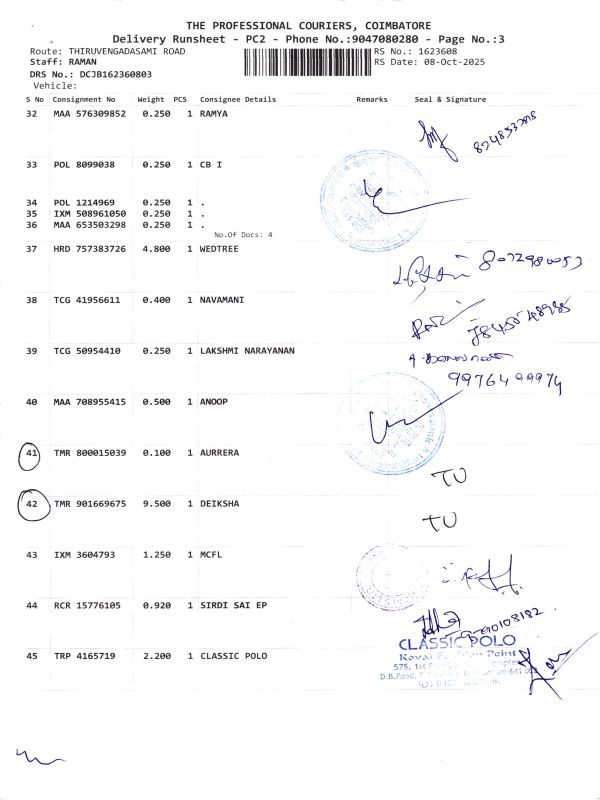 THE PROFESSIONAL COURIERS, COIMBATORE
Delivery Runsheet - PC2 - Phone No.:9047080280 - Page No.:3
Route: THIRUVENGADASAMI ROAD RS No.: 1623608
Staff: RAMAN RS Date: 08-Oct-2025
DRS No.: DCJB162360803
Vehicle:
S No Consignment No Weight PCS Consignee Details Remarks Seal & Signature
32 MAA 576309852 0.250 1 RAMYA
33 POL 8099038 0.250 1 CB I
34 POL 1214969 0.250 1 .
35 IXM 508961050 0.250 1 .
36 MAA 653503298 0.250 1 .
No.Of Docs: 4
37 HRD 757383726 4.800 1 WEDTREE
38 TCG 41956611 0.400 1 NAVAMANI
39 TCG 50954410 0.250 1 LAKSHMI NARAYANAN
9976499974
40 MAA 708955415 0.500 1 ANOOP
41 TMR 800015039 0.100 1 AURRERA TU
42 TMR 901669675 9.500 1 DEIKSHA TU
43 IXM 3604793 1.250 1 MCFL
44 RCR 15776105 0.920 1 SIRDI SAI EP
CLASSIC POLO
45 TRP 4165719 2.200 1 CLASSIC POLO